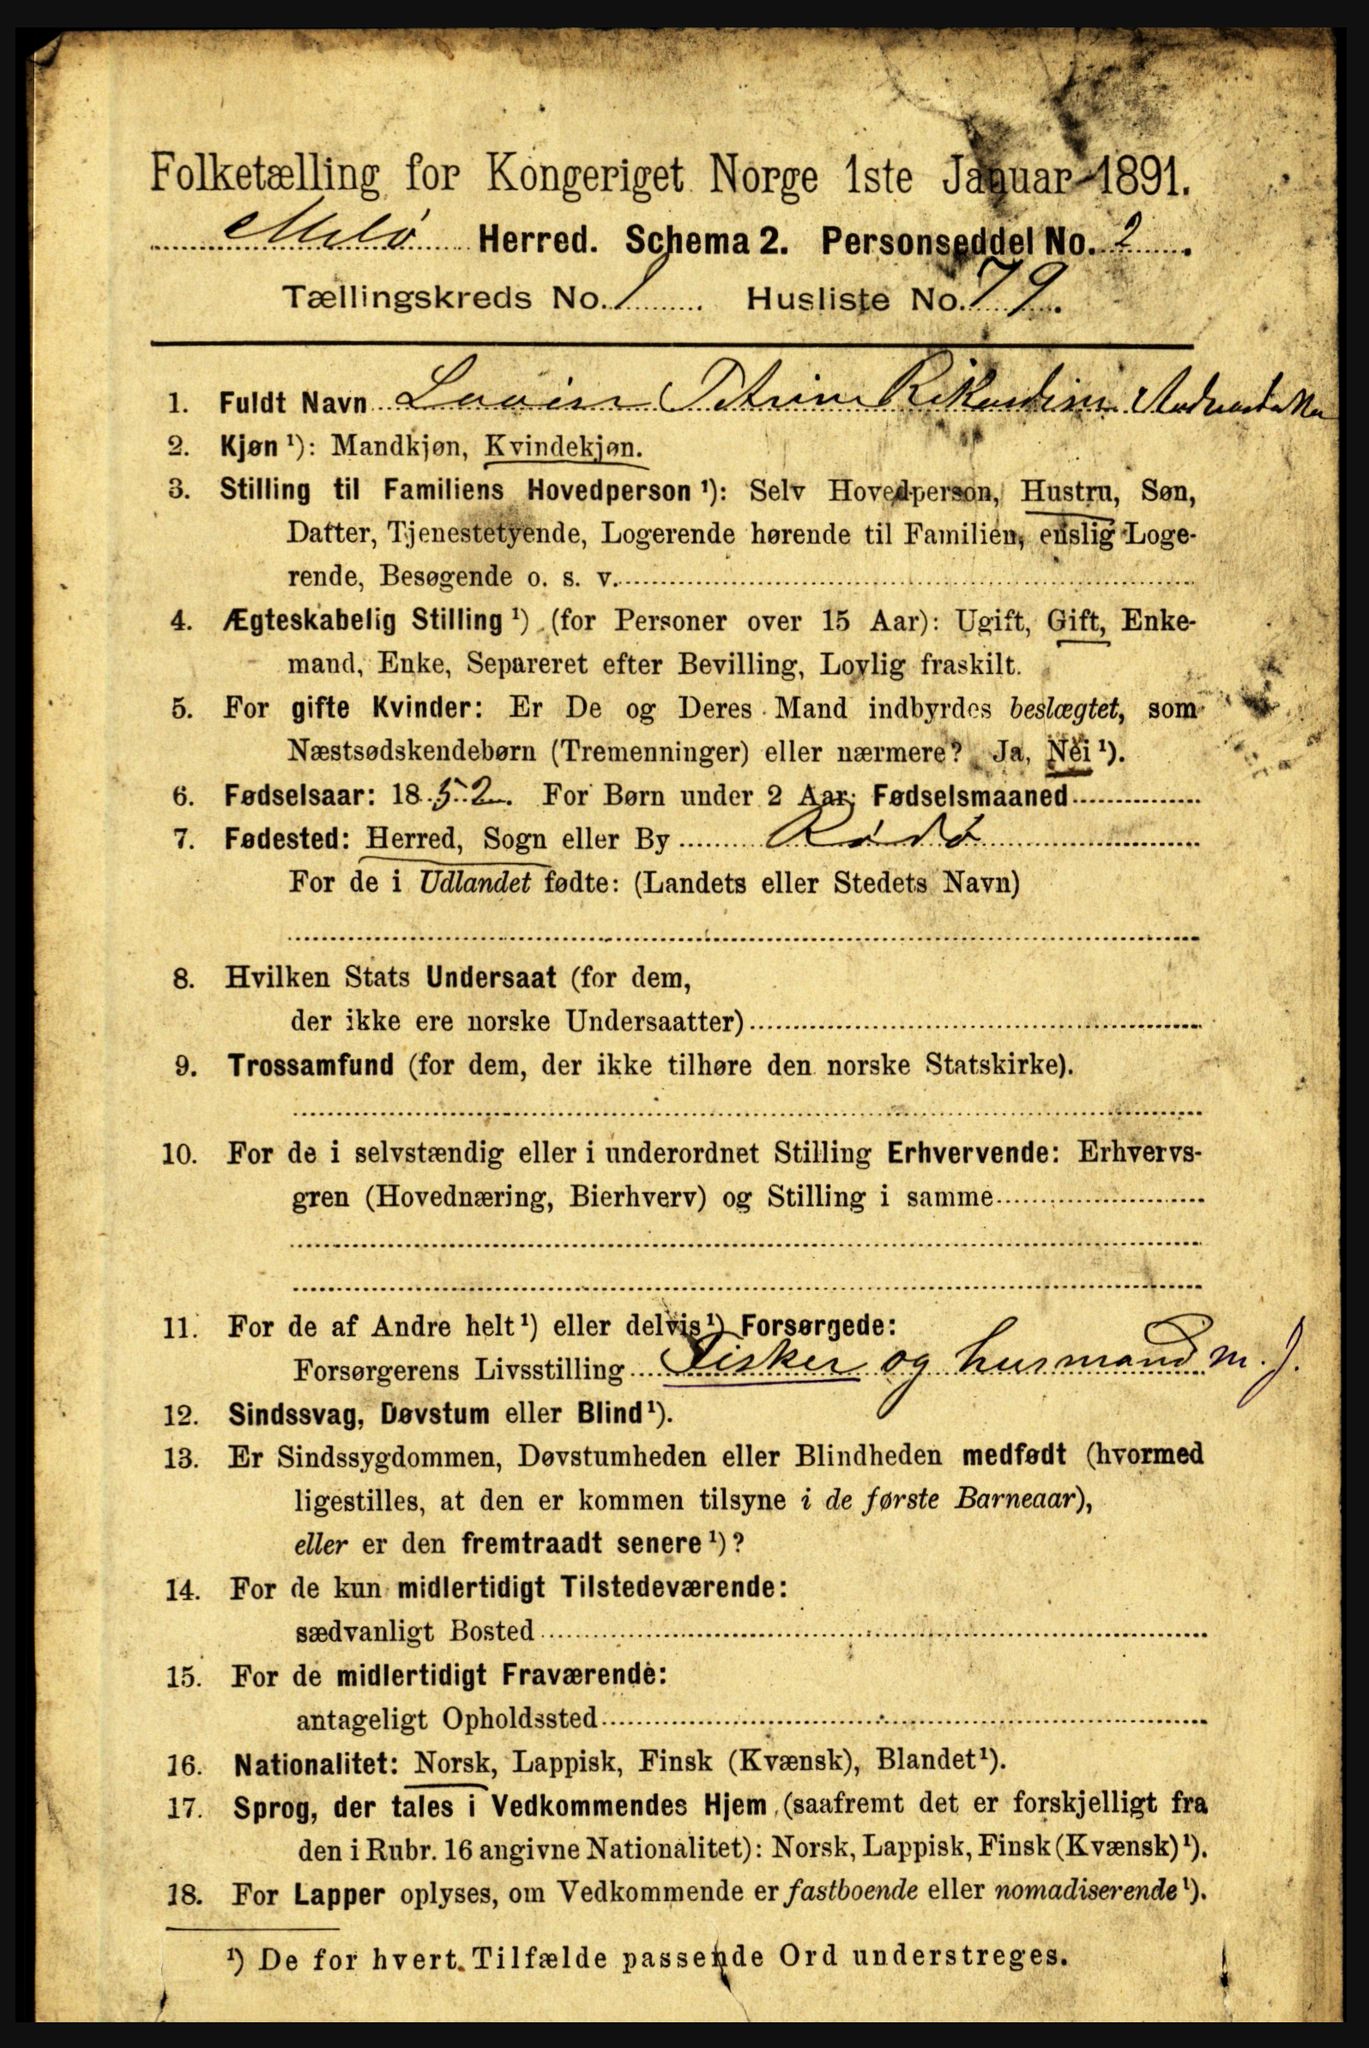 Folketælling for Kongeriget Norge 1ste Januar 1891.
Melø Herred. Schema 2. Personseddel No. 2.
Tællingskreds No. 1. Husliste No. 79.
1. Fuldt Navn Lovise Petrine Rikardine
2. Kjøn ¹): Mandkjøn, Kvindekjøn.
3. Stilling til Familiens Hovedperson ¹): Selv Hovedperson, Hustru, Søn,
Datter, Tjenestetyende, Logerende hørende til Familien, enslig Loge-
rende, Besøgende o. s. v.
4. Ægteskabelig Stilling ¹) (for Personer over 15 Aar): Ugift, Gift, Enke-
mand, Enke, Separeret efter Bevilling, Lovlig fraskilt.
5. For gifte Kvinder: Er De og Deres Mand indbyrdes beslægtet, som
Næstsødskendebørn (Tremenninger) eller nærmere? Ja, Nei ¹).
6. Fødselsaar: 1852. For Børn under 2 Aar: Fødselsmaaned
7. Fødested: Herred, Sogn eller By Rødø
For de i Udlandet fødte: (Landets eller Stedets Navn)
8. Hvilken Stats Undersaat (for dem,
der ikke ere norske Undersaatter)
9. Trossamfund (for dem, der ikke tilhøre den norske Statskirke).
10. For de i selvstændig eller i underordnet Stilling Erhvervende: Erhvervs-
gren (Hovednæring, Bierhverv) og Stilling i samme
11. For de af Andre helt ¹) eller delvis ¹) Forsørgede:
Forsørgerens Livsstilling Fisker og husmand m. j.
12. Sindssvag, Døvstum eller Blind ¹).
13. Er Sindssygdommen, Døvstumheden eller Blindheden medfødt (hvormed
ligestilles, at den er kommen tilsyne i de første Barneaar),
eller er den fremtraadt senere ¹)?
14. For de kun midlertidigt Tilstedeværende:
sædvanligt Bosted
15. For de midlertidigt Fraværende:
antageligt Opholdssted
16. Nationalitet: Norsk, Lappisk, Finsk (Kvænsk), Blandet ¹).
17. Sprog, der tales i Vedkommendes Hjem (saafremt det er forskjelligt fra
den i Rubr. 16 angivne Nationalitet): Norsk, Lappisk, Finsk (Kvænsk) ¹).
18. For Lapper oplyses, om Vedkommende er fastboende eller nomadiserende ¹).
¹) De for hvert Tilfælde passende Ord understreges.